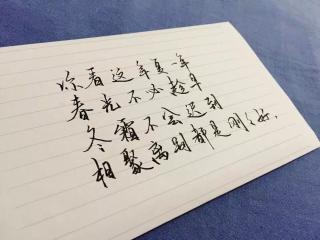 你看这年复一年
春光不必趁早
冬霜不会迟到
相聚离别都是刚刚好.